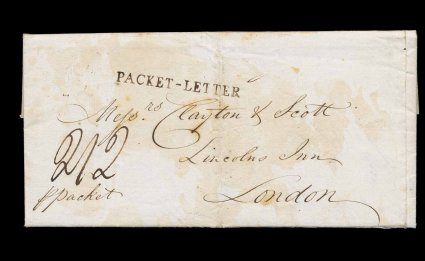 PACKET-LETTER
Messrs Clayton & Scott
Lincolns Inn
London
2/2
p packet